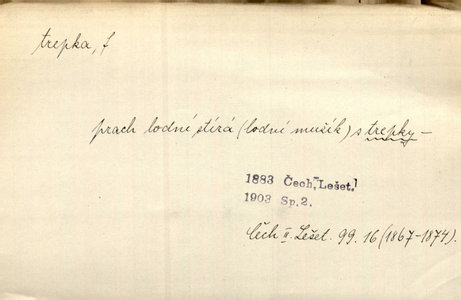 trepka, f
prach lodní stírá (lodní mušík) s trepky –
1883 Čech, Lešet.
1903 Sp. 2.
Čech II. Lešet. 99. 16 (1867-1874).